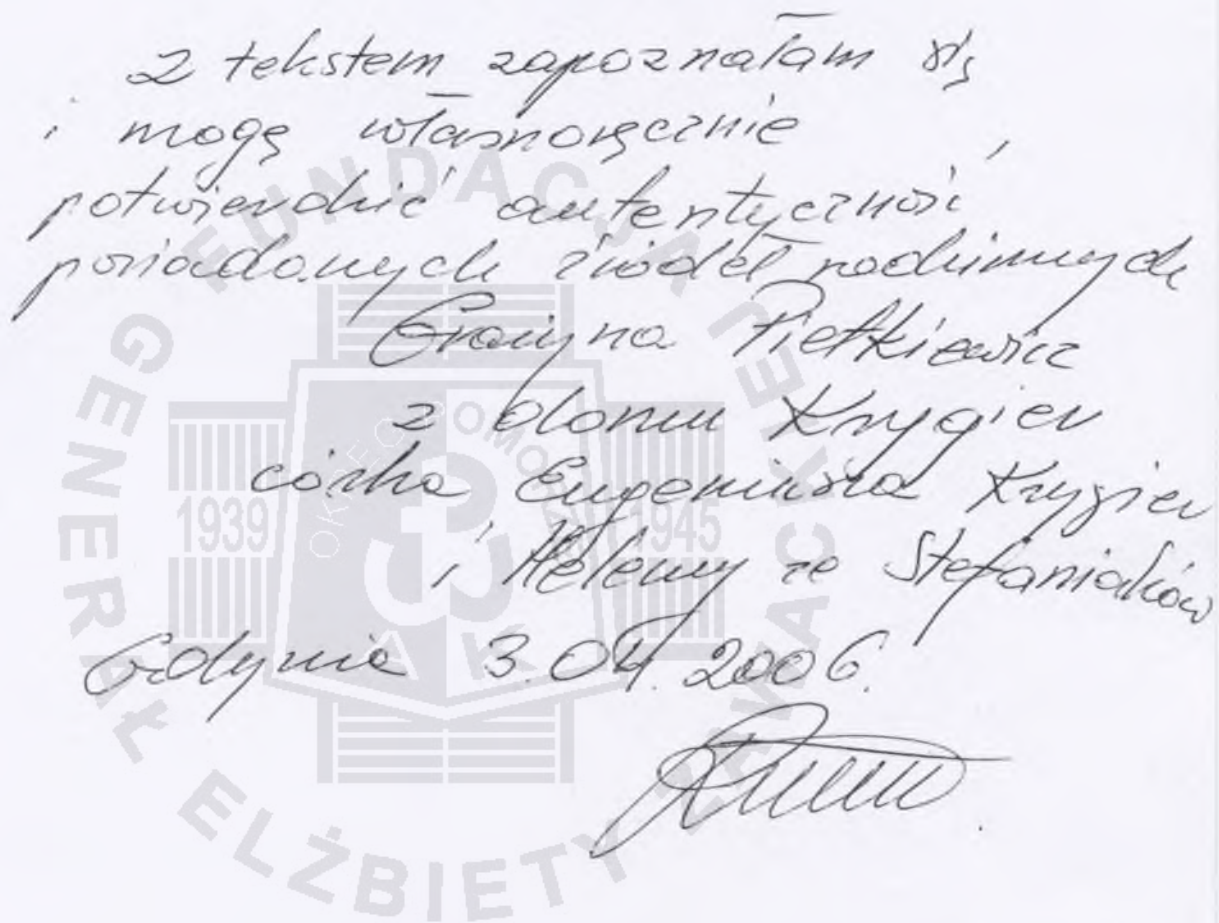 Z tekstem zapoznałam się
i mogę własnoręcznie
potwierdzić autentyczność
posiadanych źródeł rodzinnych
Grażyna Pietkiewicz
z domu Krygier
córka Eugeniusza Krygier
i Heleny ze Stefaniaków
Gdynia 3.04.2006.
FUNDACJA
GENERAŁ ELŻBIETY ZAWACKIEJ
1939
1945
OKRĘG POMORZE
AK